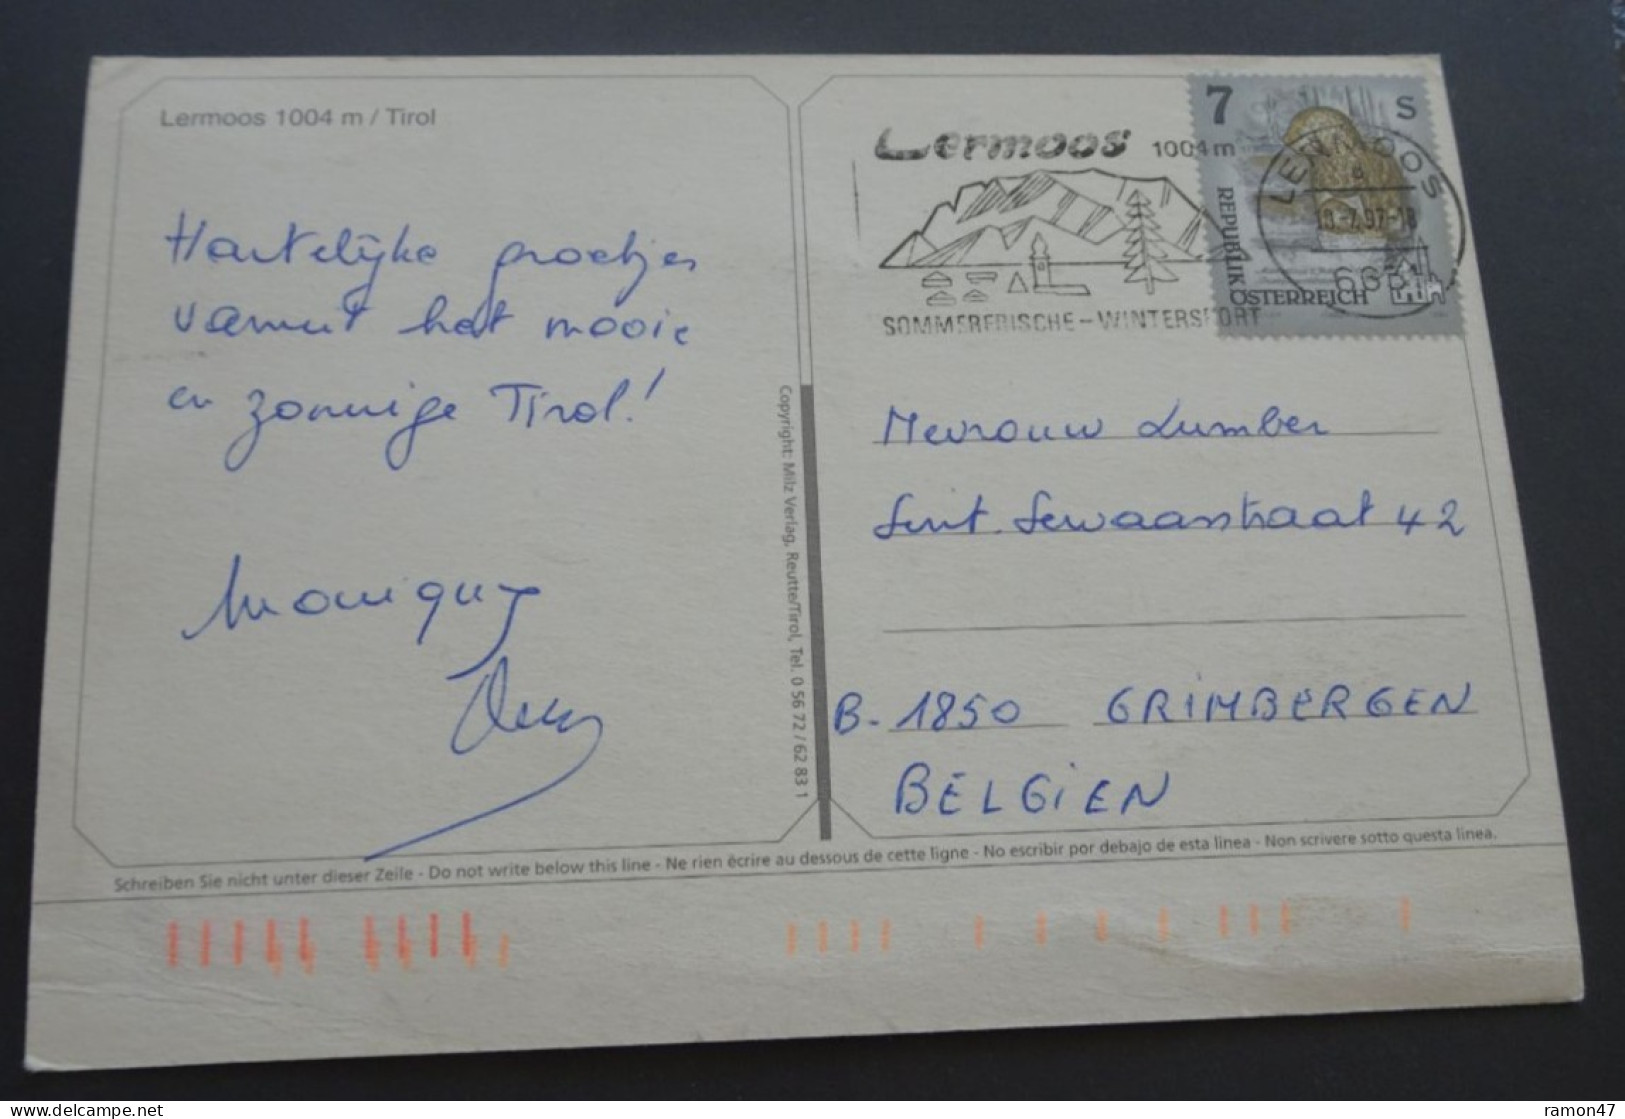 Lermoos 1004 m / Tirol
Hartelijke groetjes
vanuit het mooie
en zonnige Tirol!
Monique
Copyright: Milz Verlag, Reutte/Tirol, Tel. 0 56 72 / 62 83 1
Lermoos 1004 m
SOMMERFRISCHE - WINTERSPORT
7 S
REPUBLIK
ÖSTERREICH
LERMOOS
a
-7.97-18
6631
Mevrouw Lumber
Sint Servaasstraat 42
B. 1850 GRIMBERGEN
BELGIEN
Schreiben Sie nicht unter dieser Zeile - Do not write below this line - Ne rien écrire au dessous de cette ligne - No escribir por debajo de esta linea - Non scrivere sotto questa linea.
delcampe.net
ramon47